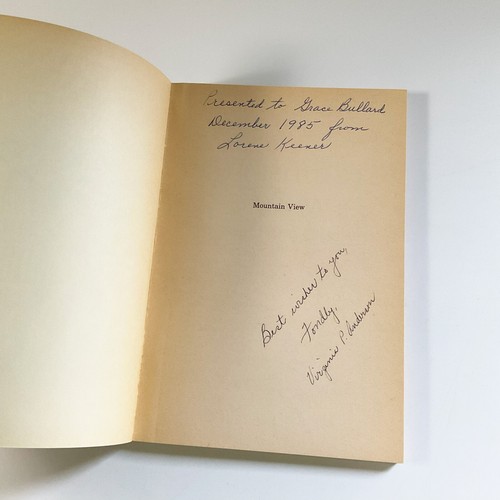 Presented to Grace Bullard
December 1985 from
Lorene Keener
Mountain View
Best wishes to you,
Fondly,
Virginia P. Anderson